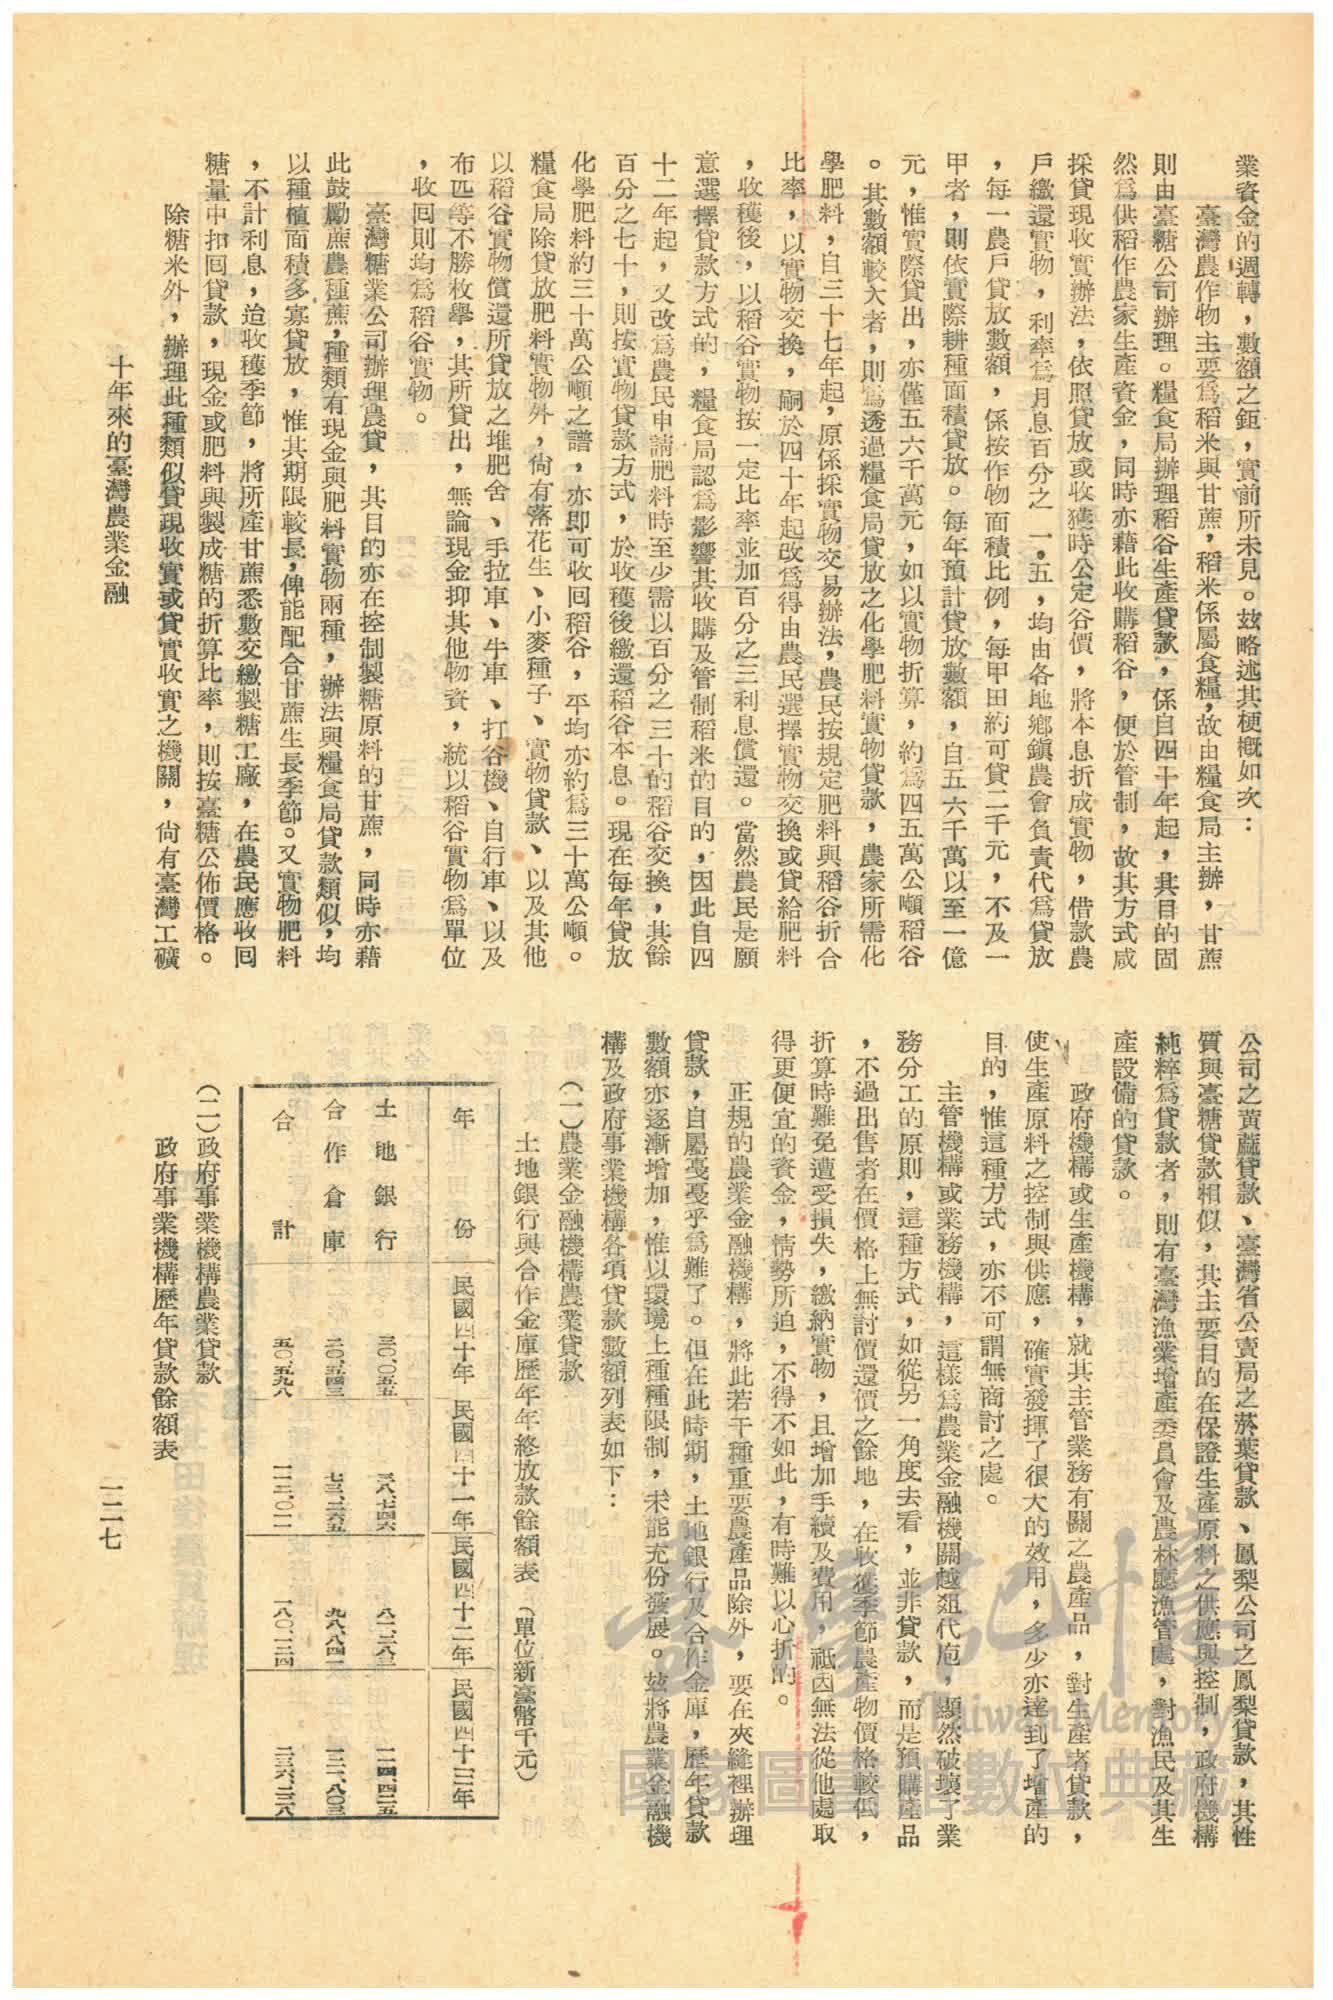 業資金的週轉，數額之鉅，實前所未見。茲略述其梗概如次：
臺灣農作物主要為稻米與甘蔗，稻米係屬食糧，故由糧食局主辦，甘蔗
則由臺糖公司辦理。糧食局辦理稻谷生產貸款，係自四十年起，其目的固
然為供稻作農家生產資金，同時亦藉此收購稻谷，便於管制，故其方式咸
採貸現收實辦法，依照貸放或收獲時公定谷價，將本息折成實物，借款農
戶繳還實物，利率為月息百分之一・五，均由各地鄉鎮農會負責代為貸放
，每一農戶貸放數額，係按作物面積比例，每甲田約可貸二千元，不及一
甲者，則依實際耕種面積貸放。每年預計貸放數額，自五六千萬以至一億
元，惟實際貸出，亦僅五六千萬元，如以實物折算，約為四五萬公噸稻谷
。其數額較大者，則為透過糧食局貸放之化學肥料實物貸款，農家所需化
學肥料，自三十七年起，原係採實物交易辦法，農民按規定肥料與稻谷折合
比率，以實物交換，嗣於四十年起改為得由農民選擇實物交換或貸給肥料
，收穫後，以稻谷實物按一定比率並加百分之三利息償還。當然農民是願
意選擇貸款方式的，糧食局認為影響其收購及管制稻米的目的，因此自四
十二年起，又改為農民申請肥料時至少需以百分之三十的稻谷交換，其餘
百分之七十，則按實物貸款方式，於收穫後繳還稻谷本息。現在每年貸放
化學肥料約三十萬公噸之譜，亦即可收回稻谷，平均亦約為三十萬公噸。
糧食局除貸放肥料實物外，尚有落花生、小麥種子、實物貸款、以及其他
以稻谷實物償還所貸放之堆肥舍、手拉車、牛車、打谷機、自行車、以及
布匹等不勝枚舉，其所貸出，無論現金抑其他物資，統以稻谷實物為單位
，收回則均為稻谷實物。
臺灣糖業公司辦理農貸，其目的亦在控制製糖原料的甘蔗，同時亦藉
此鼓勵蔗農種蔗，種類有現金與肥料實物兩種，辦法與糧食局貸款類似，均
以種植面積多寡貸放，惟其期限較長，俾能配合甘蔗生長季節。又實物肥料
，不計利息，迨收穫季節，將所產甘蔗悉數交繳製糖工廠，在農民應收回
糖量中扣回貸款，現金或肥料與製成糖的折算比率，則按臺糖公佈價格。
除糖米外，辦理此種類似貸現收實或貸實收實之機關，尚有臺灣工礦
十年來的臺灣農業金融
公司之黃蔴貸款、臺灣省公賣局之菸葉貸款、鳳梨公司之鳳梨貸款，其性
質與臺糖貸款相似，其主要目的在保證生產原料之供應與控制，政府機構
純粹為貸款者，則有臺灣漁業增產委員會及農林廳漁管處，對漁民及其生
產設備的貸款。
政府機構或生產機構，就其主管業務有關之農產品，對生產者貸款，
使生產原料之控制與供應，確實發揮了很大的效用，多少亦達到了增產的
目的，惟這種方式，亦不可謂無商討之處。
主管機構或業務機構，這樣為農業金融機關越俎代庖，顯然破壞了業
務分工的原則，這種方式，如從另一角度去看，並非貸款，而是預購產品
，不過出售者在價格上無討價還價之餘地，在收獲季節農產物價格較低，
折算時難免遭受損失，繳納實物，且增加手續及費用，祇因無法從他處取
得更便宜的資金，情勢所迫，不得不如此，有時難以心折的。
正規的農業金融機構，將此若干種重要農產品除外，要在夾縫裡辦理
貸款，自屬戞戞乎為難了。但在此時期，土地銀行及合作金庫，歷年貸款
數額亦逐漸增加，惟以環境上種種限制，未能充份發展。茲將農業金融機
構及政府事業機構各項貸款數額列表如下：
（一）農業金融機構農業貸款
土地銀行與合作金庫歷年年終放款餘額表（單位新臺幣千元）
年份 民國四十年 民國四十一年 民國四十二年 民國四十三年
土地銀行 三〇、〇五五 三八、七四六 八一、三八三 一一四、四二五
合作倉庫 二〇、五四三 七三、二六五 九八、八四一 一二一、八〇三
合計 五〇、五九八 一一二、〇一一 一八〇、二二四 二三六、二二八
（二）政府事業機構農業貸款
政府事業機構歷年貸款餘額表
一二七
臺灣記憶
Taiwan Memory
國家圖書館數位典藏